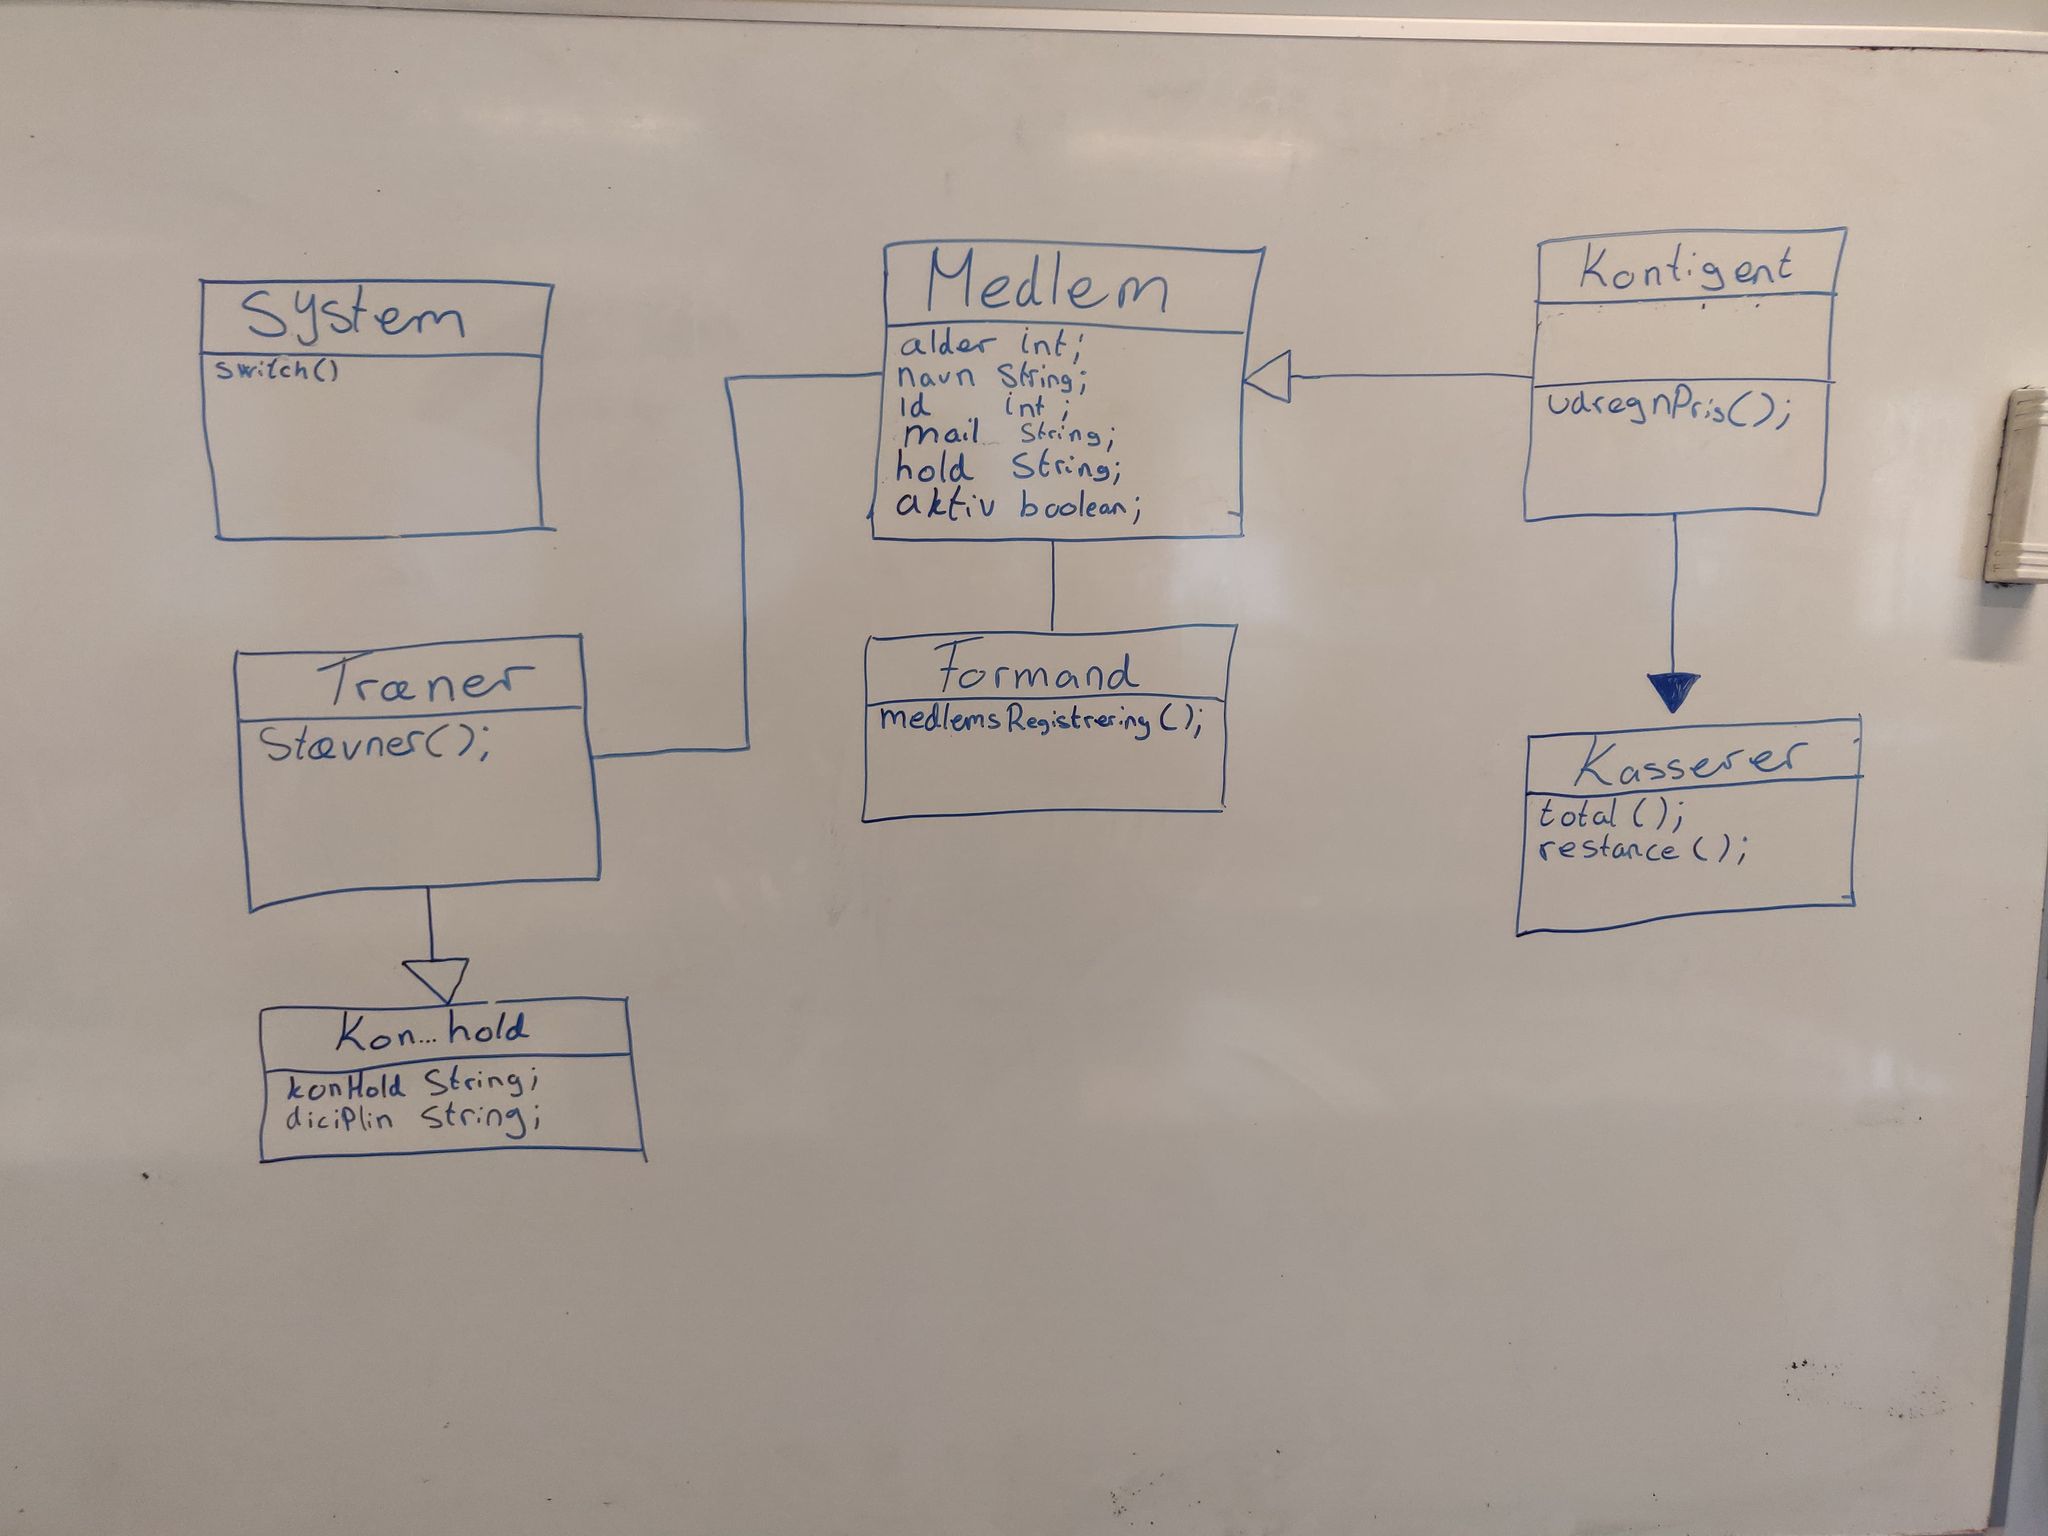 System
switch()
Medlem
alder int;
navn String;
id int;
mail String;
hold String;
aktiv boolean;
Kontigent
udregnPris();
Træner
Stævner();
Formand
medlemsRegistrering();
Kasserer
total();
restance();
Kon...hold
konHold String;
diciplin String;